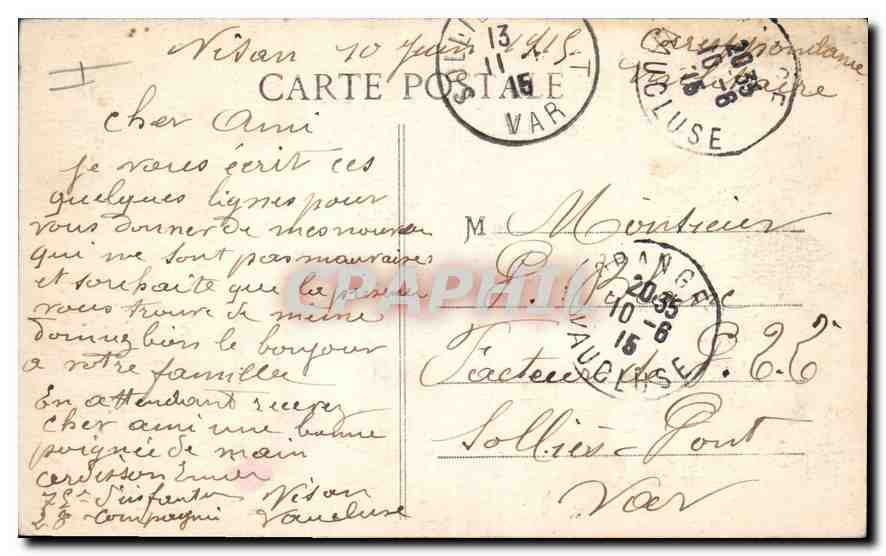 Nisan 10 juin 1915
Correspondance
Militaire
CARTE POSTALE
SOLLIES-PONT
13
11
15
VAR
20 35
10 -6
15
VAUCLUSE
Cher Ami
je vous écrit ces
quelques lignes pour
vous donner de mes nouvelles
qui ne sont pas mauvaises
et souhaite que la présente
vous trouve de meme
donnez bien le bonjour
a votre famille
En attendant recevez
cher ami une bonne
poignée de main
75e d'infanterie Nisan
28 compagnie Vaucluse
M Monsieur
Facteur des P. T. T.
Solliès-Pont
Var
ORANGE
20 35
10 -6
15
VAUCLUSE
CPAPHIL